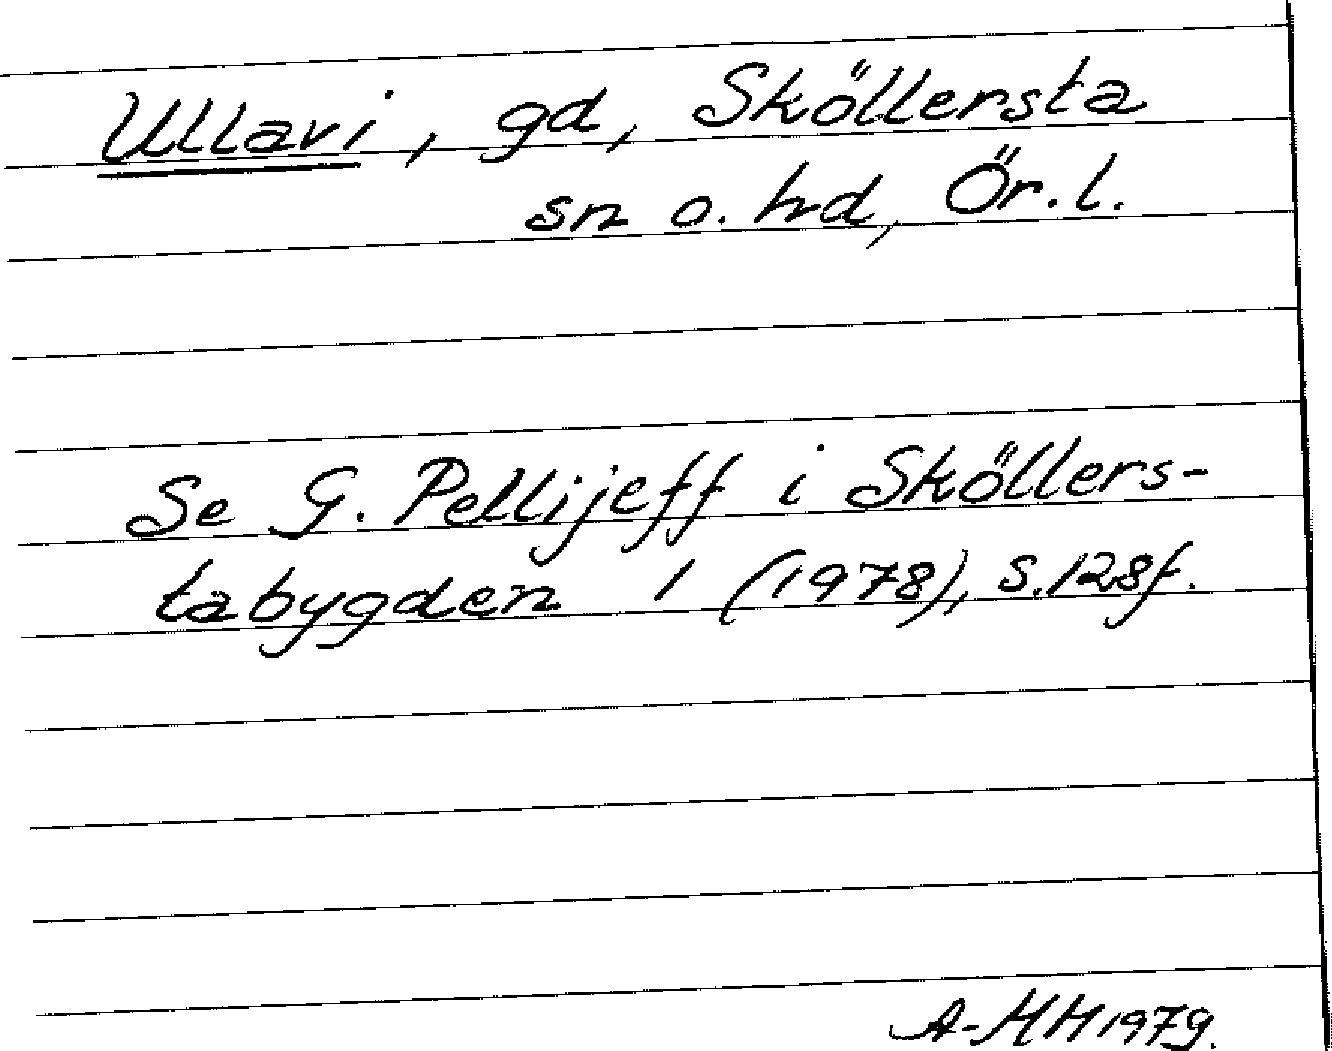 Ullavi, gd, Sköllersta
sn o. hd, Ör. l.
Se G. Pellijeff i Sköllers-
tabygden 1 (1978), s. 128f.
A-MH 1979.